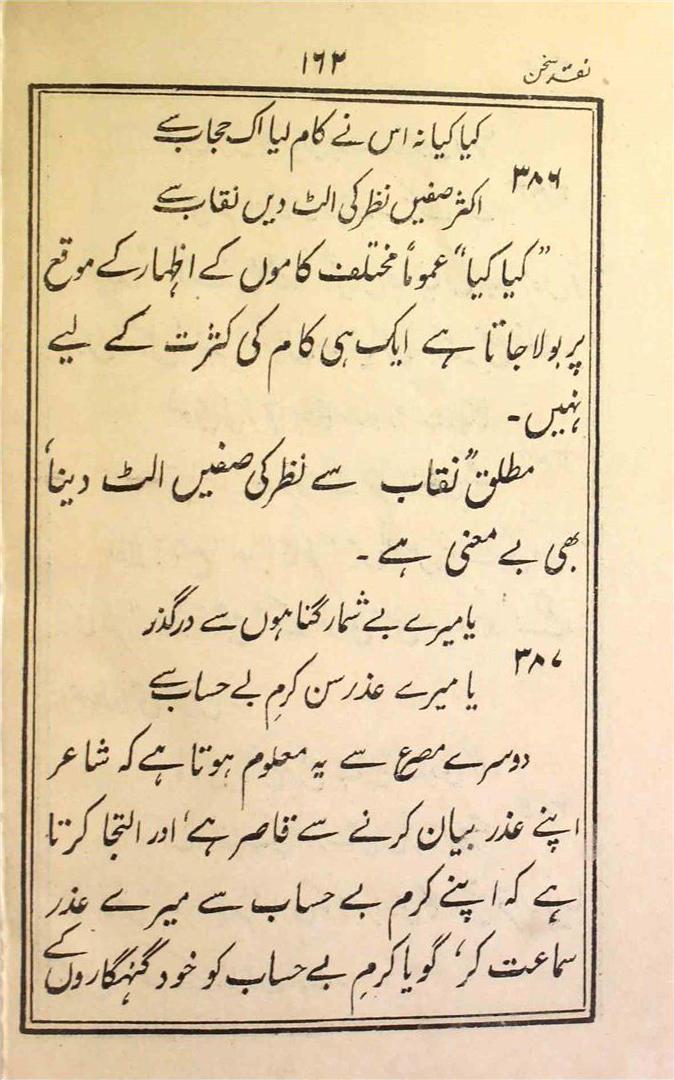 نقد سخن
۱۶۲
کیا کیا نہ اس نے کام لیا اک حجاب سے
۳۸۶
اکثر صفیں نظر کی الٹ دیں نقاب سے
”کیا کیا“ عموماً مختلف کاموں کے اظہار کے موقع
پر بولا جاتا ہے ایک ہی کام کی کثرت کے لیے
نہیں۔
مطلق ”نقاب سے نظر کی صفیں الٹ دینا‘
بھی بے معنی ہے۔
یا میرے بے شمار گناہوں سے درگذر
۳۸۷
یا میرے عذر سن کرمِ بے حساب سے
دوسرے مصرع سے یہ معلوم ہوتا ہے کہ شاعر
اپنے عذر بیان کرنے سے قاصر ہے‘ اور التجا کرتا
ہے کہ اپنے کرم بے حساب سے میرے عذر
سماعت کر‘ گویا کرمِ بے حساب کو خود گنہگاروں کے